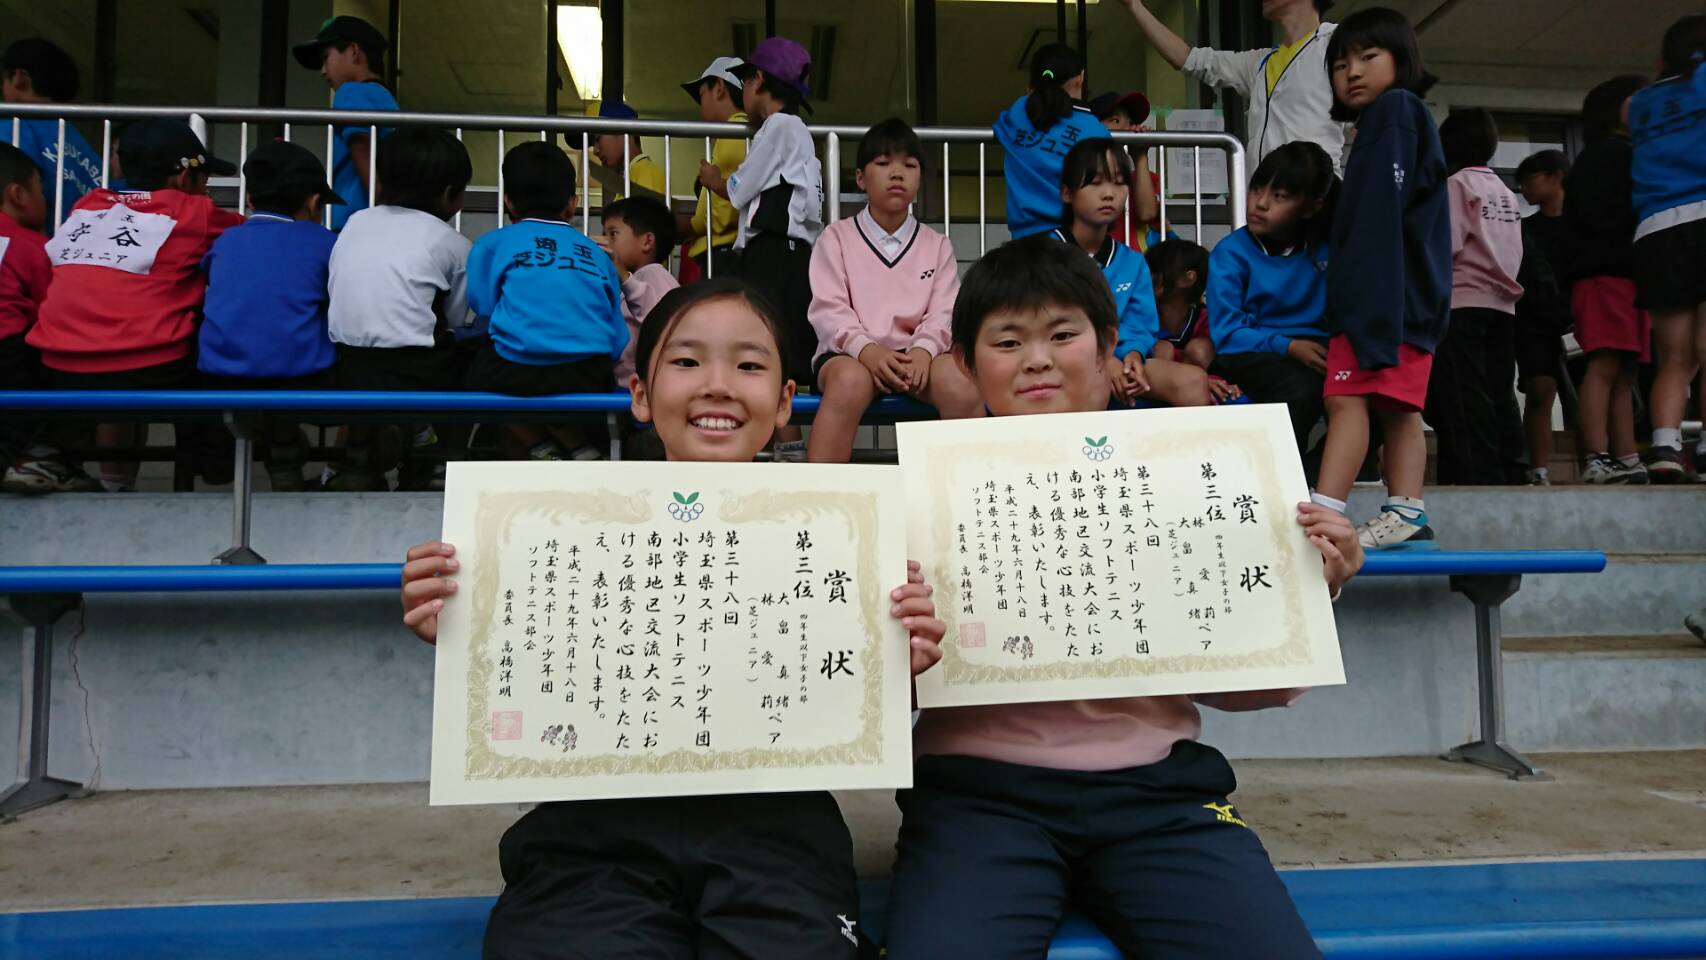 埼玉
芝ジュニア
KABUCAB
埼玉
守谷
芝ジュニア
埼玉
芝ジュニ
賞状
第三位
四年生以下女子の部
大畠真緒ペア
林愛莉
(芝ジュニア)
第三十八回
埼玉県スポーツ少年団
小学生ソフトテニス
南部地区交流大会にお
ける優秀な心技をたた
え、表彰いたします。
平成二十九年六月十八日
埼玉県スポーツ少年団
ソフトテニス部会
委員長 高橋洋明
賞状
第三位
四年生以下女子の部
林愛莉ペア
大畠真緒
(芝ジュニア)
第三十八回
埼玉県スポーツ少年団
小学生ソフトテニス
南部地区交流大会にお
ける優秀な心技をたた
え、表彰いたします。
平成二十九年六月十八日
埼玉県スポーツ少年団
ソフトテニス部会
委員長 高橋洋明